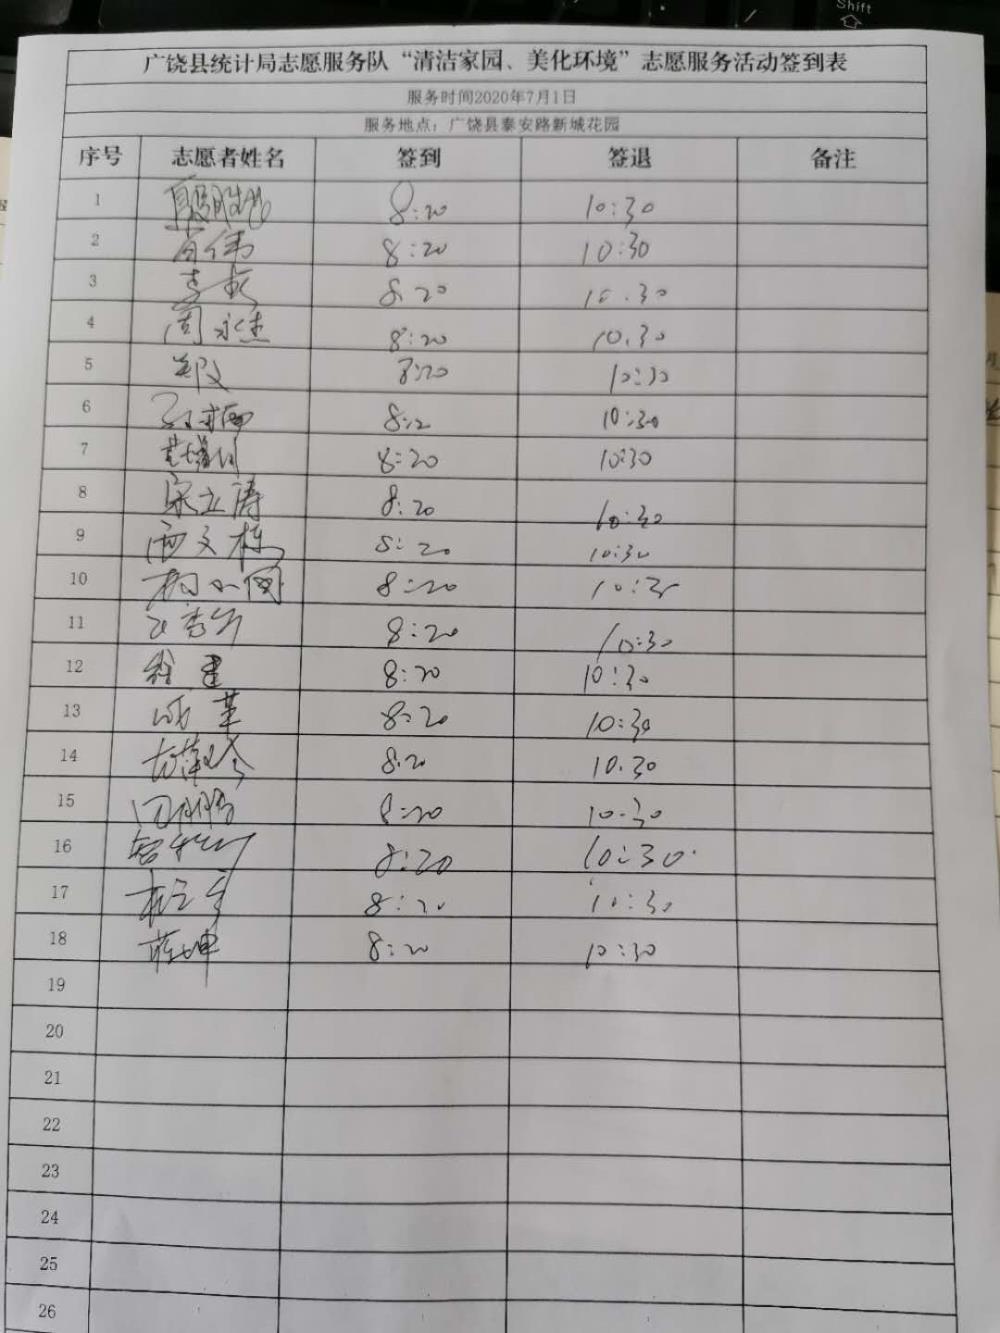 Shift
广饶县统计局志愿服务队“清洁家园、美化环境”志愿服务活动签到表
服务时间2020年7月1日
服务地点：广饶县泰安路新城花园
序号 志愿者姓名 签到 签退 备注
1 8:20 10:30
2 8:20 10:30
3 8.20 10.30
4 周永杰 8:20 10.30
5 8:20 10:30
6 8:2 10:30
7 8:20 10:30
8 宋立涛 8:20 10:30
9 8:20 10:30
10 8:20 10:30
11 8:20 10:30
12 徐建 8:20 10:30
13 8:20 10:30
14 8.20 10.30
15 8:20 10.30
16 8:20 10:30
17 8:20 10:30
18 蒋坤 8:20 10:30
19
20
21
22
23
24
25
26